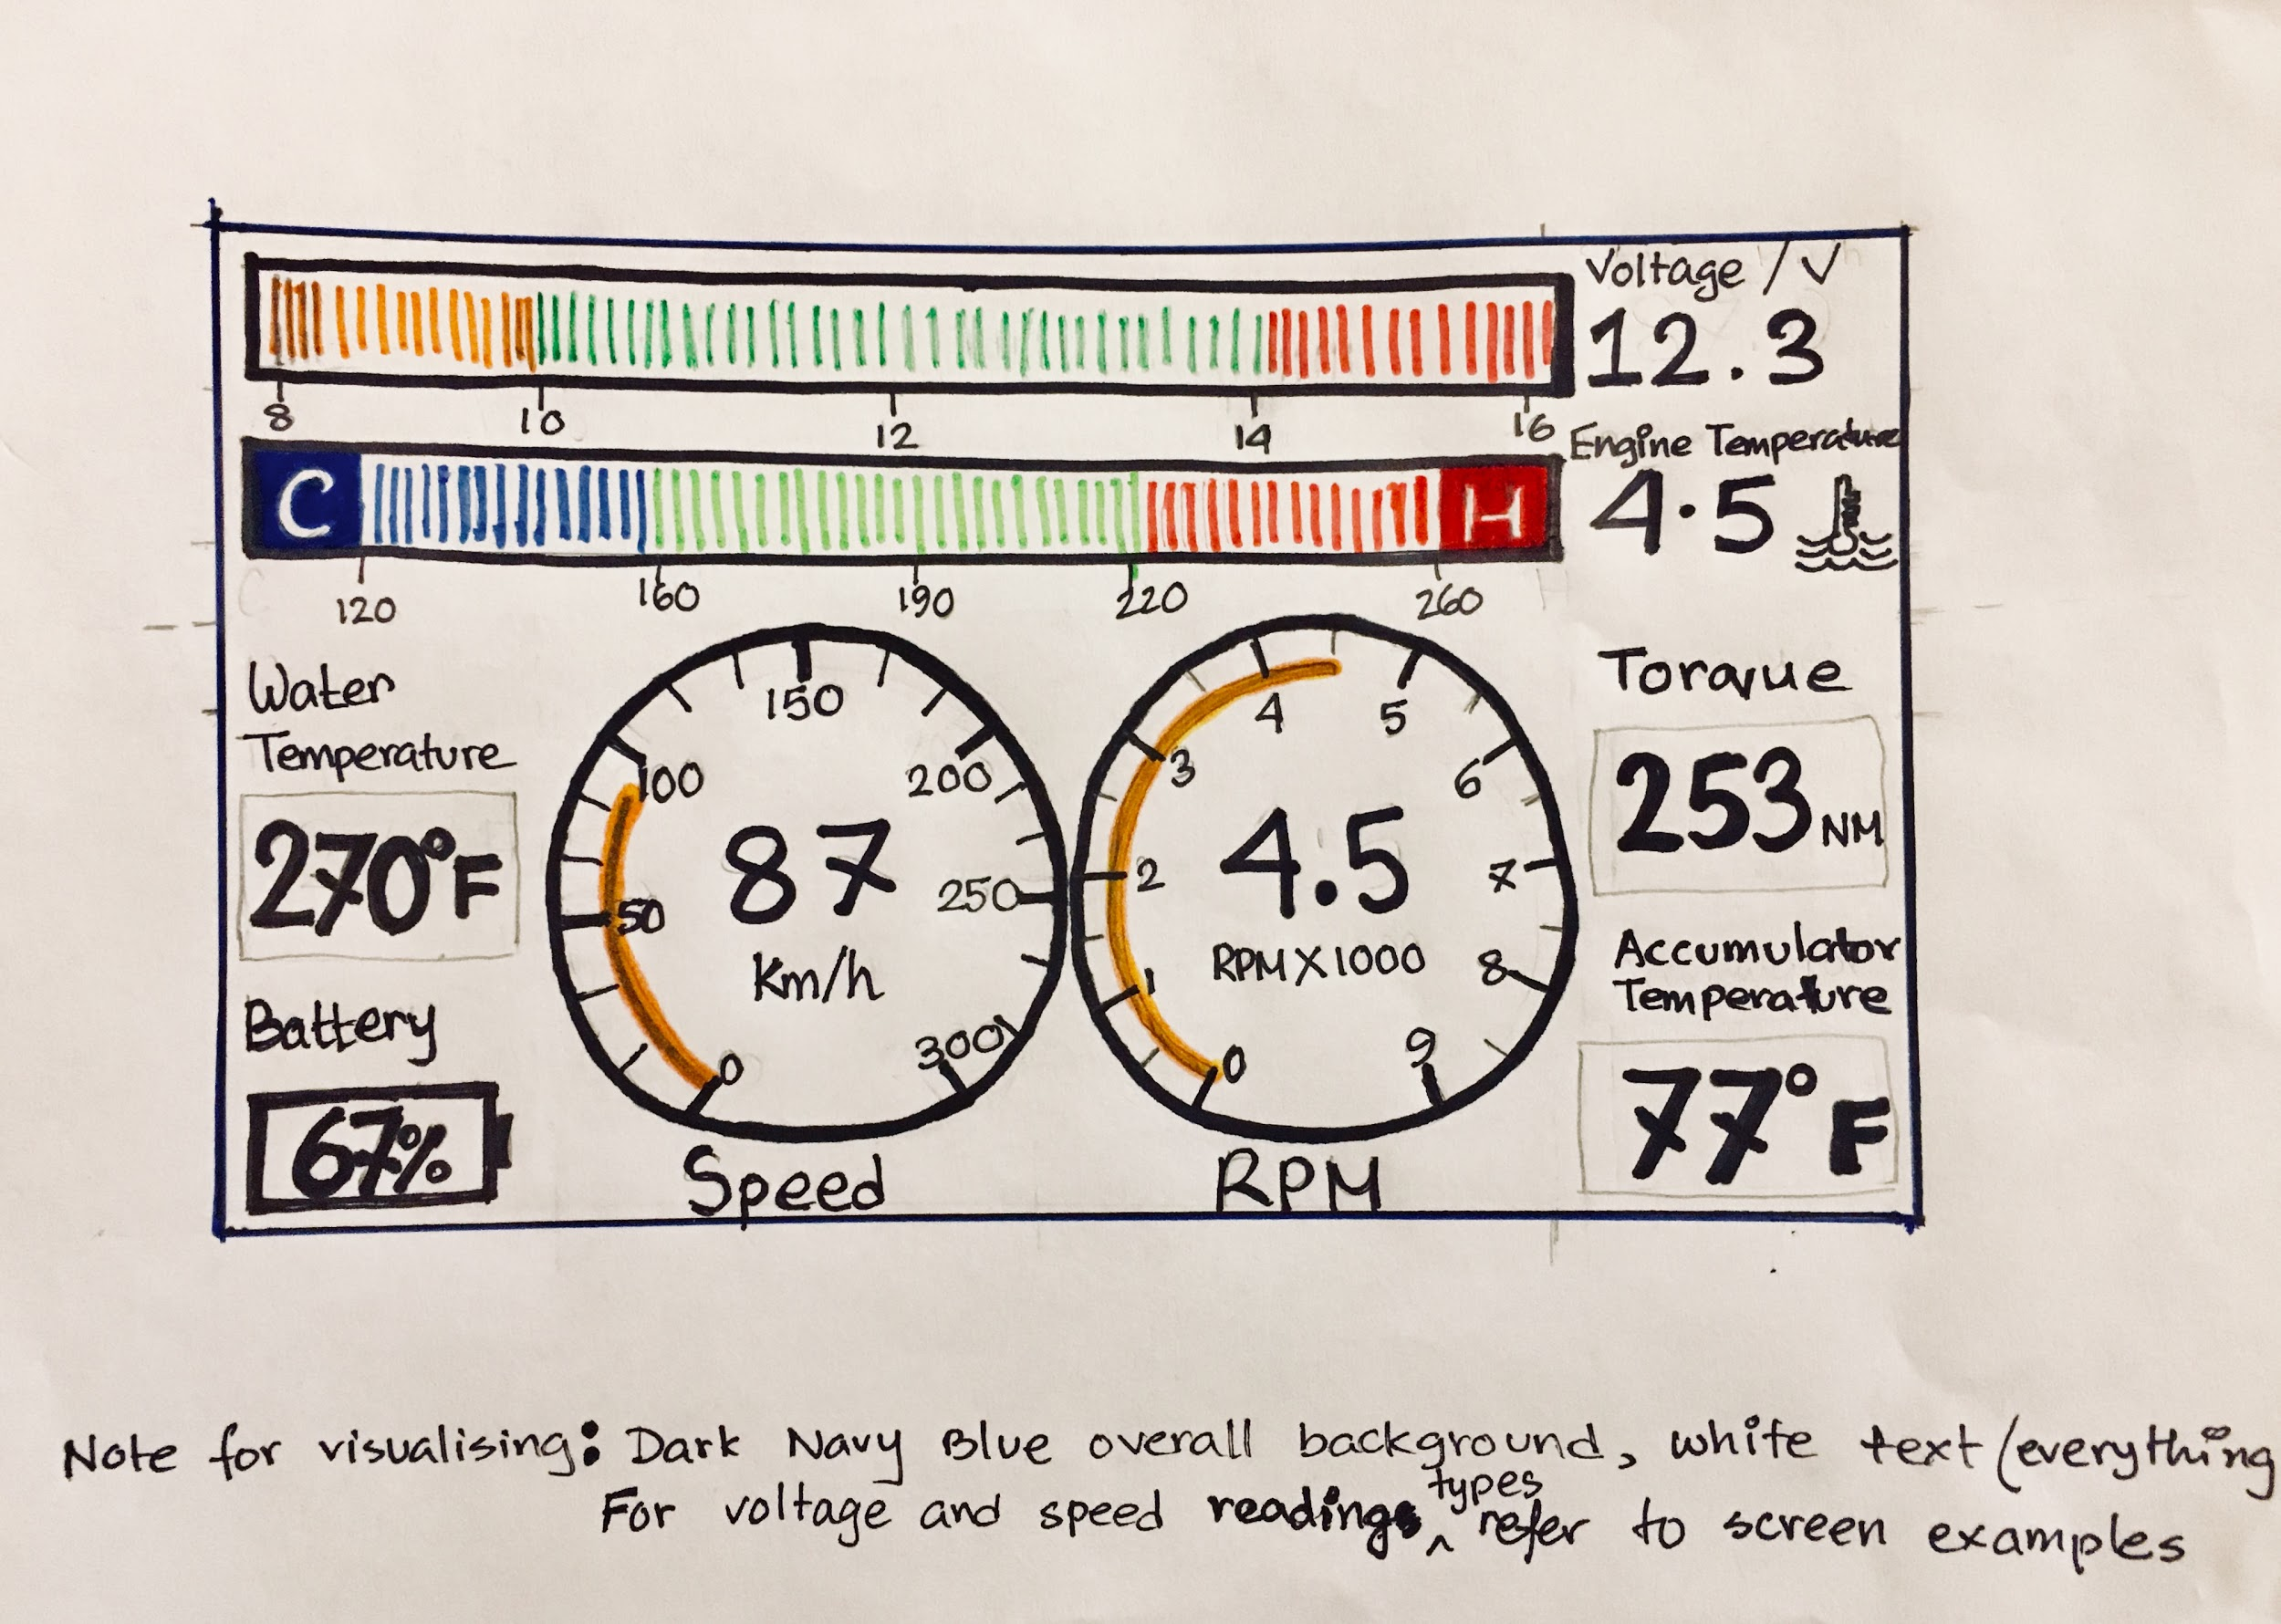 Voltage / V
12.3
8 10 12 14 16
Engine Temperature
C H
4.5
120 160 190 220 260
Water
Temperature
270°F
Battery
67%
0 50 100 150 200 250 300
87
Km/h
Speed
0 1 2 3 4 5 6 7 8 9
4.5
RPM X 1000
RPM
Torque
253 NM
Accumulator
Temperature
77° F
Note for visualising: Dark Navy Blue overall background, white text (everything
For voltage and speed readings types refer to screen examples